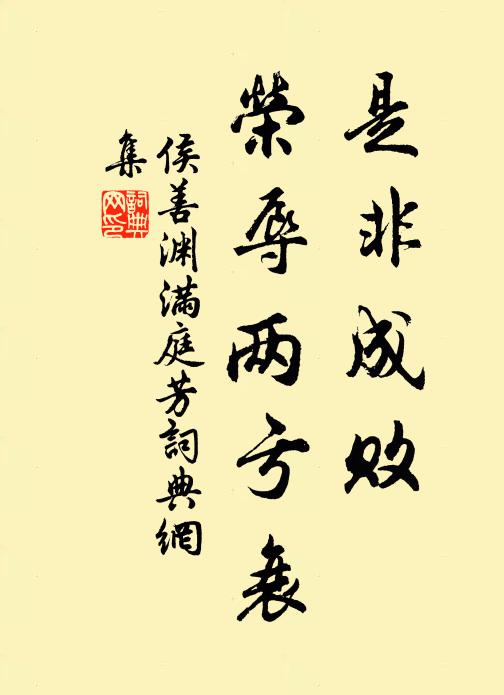 是非成败
荣辱两亏衰
侯善渊满庭芳词典網
集
詞典網印